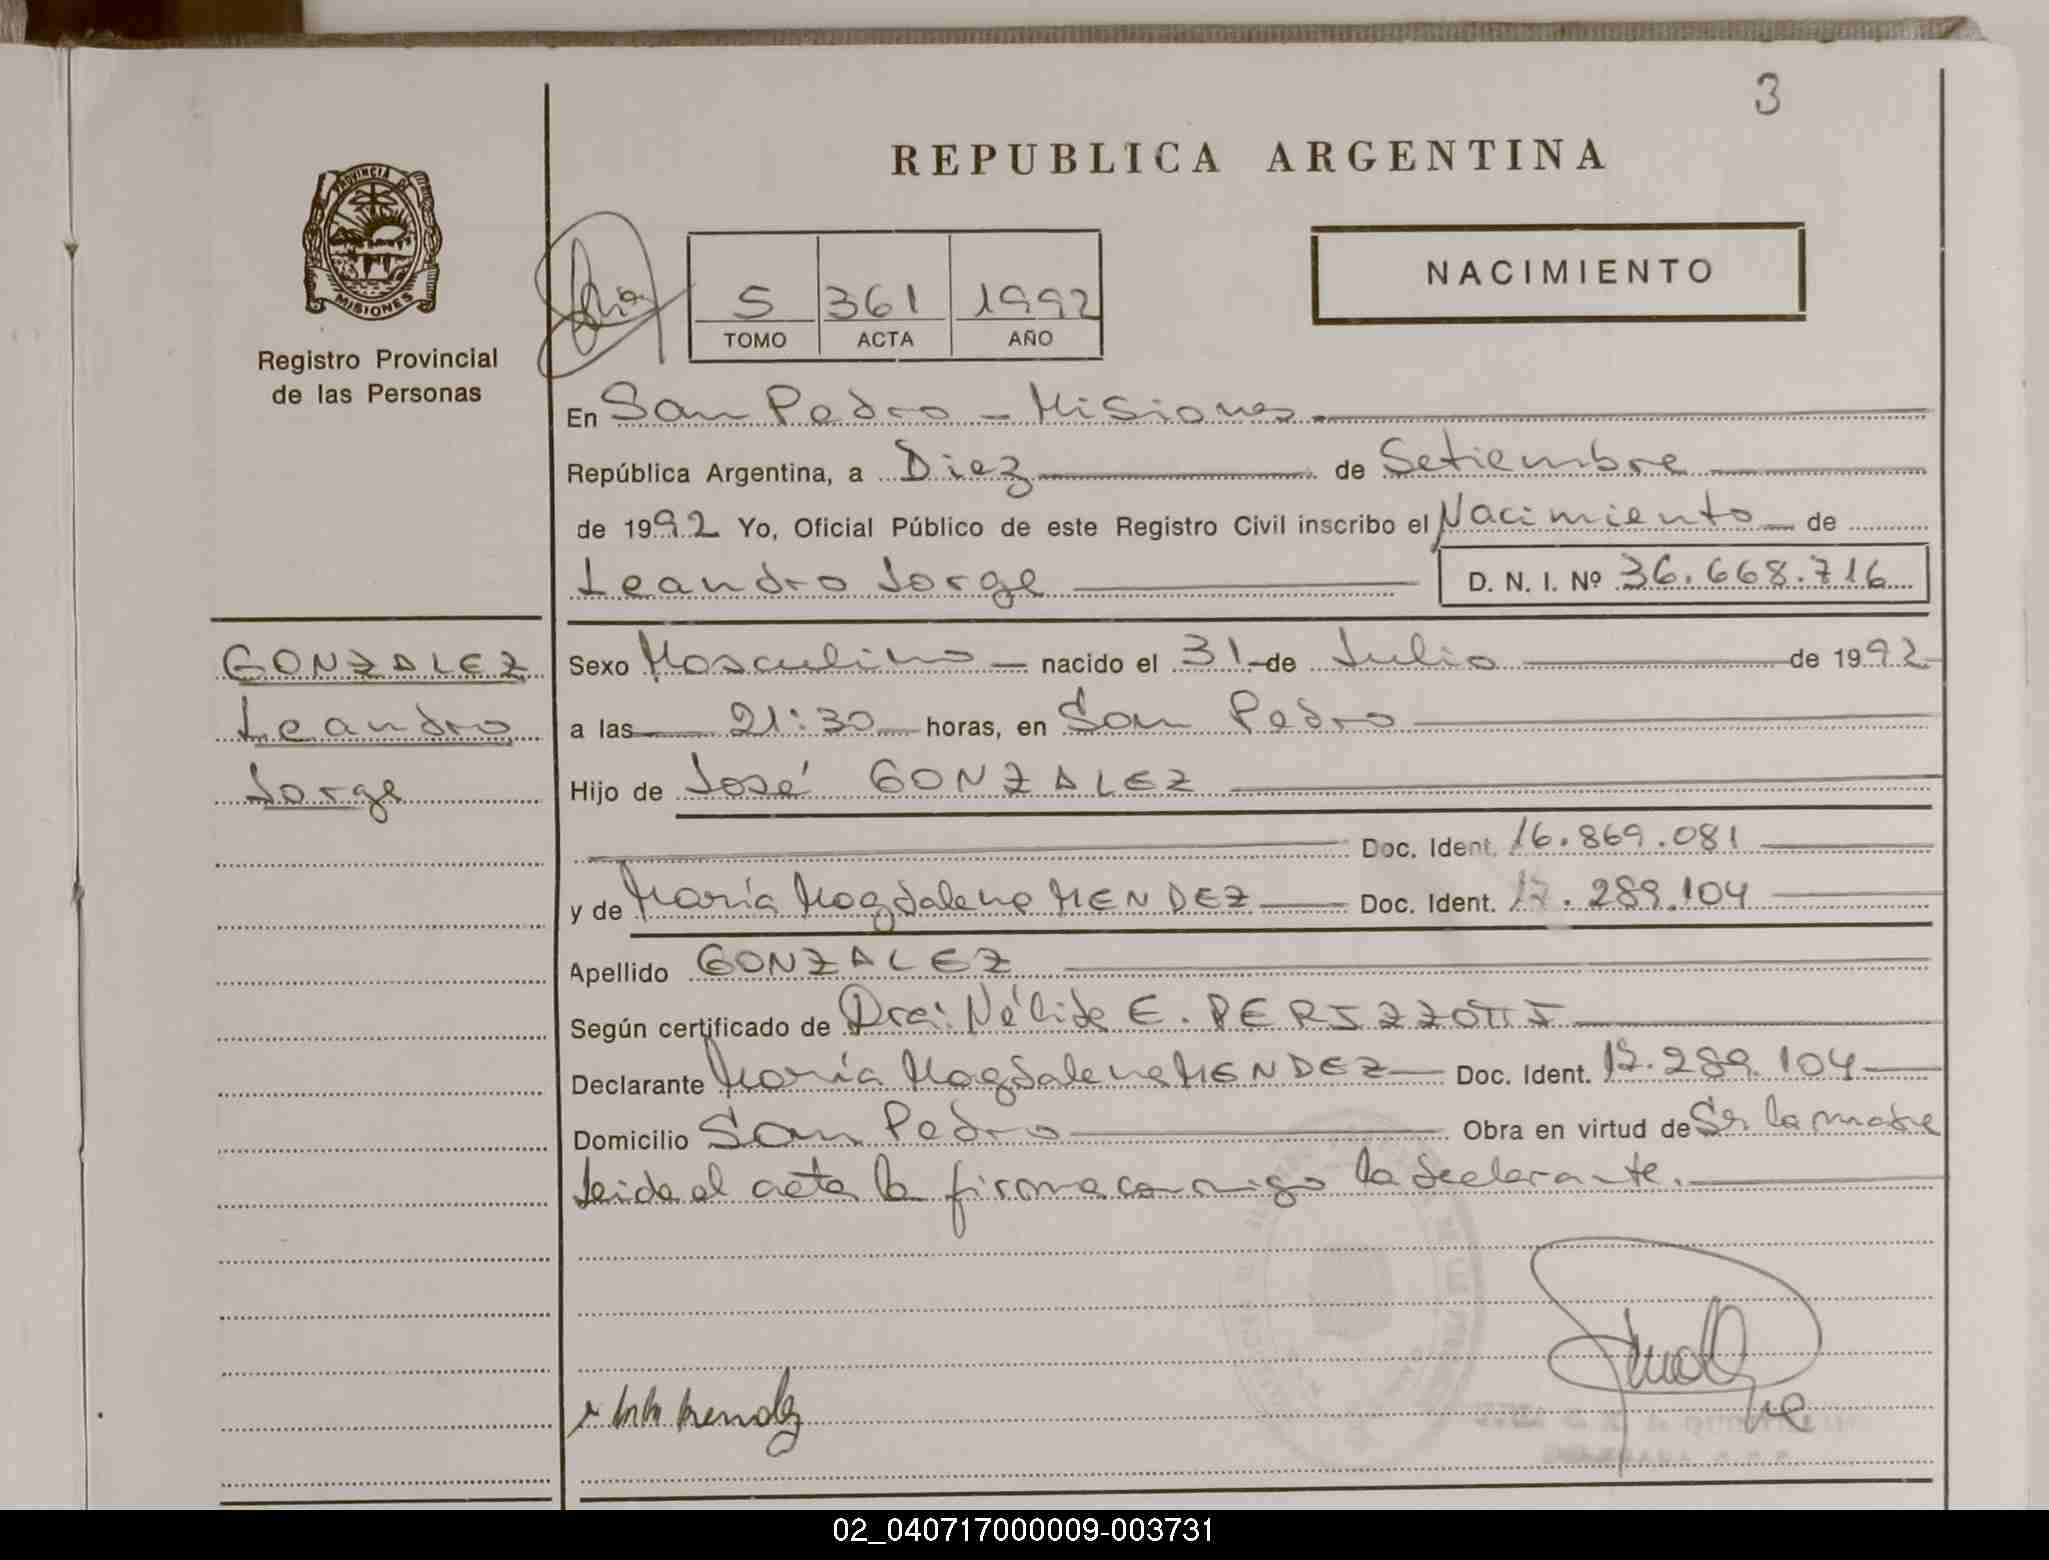 3
REPUBLICA ARGENTINA
PROVINCIA DE
MISIONES
Registro Provincial
de las Personas
5 361 1992
TOMO ACTA AÑO
NACIMIENTO
En San Pedro - Misiones
República Argentina, a Diez de Setiembre
de 1992 Yo, Oficial Público de este Registro Civil inscribo el Nacimiento de
Leandro Jorge D. N. I. Nº 36.668.716
GONZALEZ
Leandro
Jorge
Sexo Masculino nacido el 31 de Julio de 1992
a las 21:30 horas, en San Pedro
Hijo de José GONZALEZ
Doc. Ident. 16.869.081
y de María Magdalena MENDEZ Doc. Ident. 17.289.104
Apellido GONZALEZ
Según certificado de Dra: Nélida E. PERIZZOTTI
Declarante María Magdalena MENDEZ Doc. Ident. 17.289.104
Domicilio San Pedro Obra en virtud de Ser la madre
Leida el acta la firma conmigo la declarante.
mendez
02_040717000009-003731